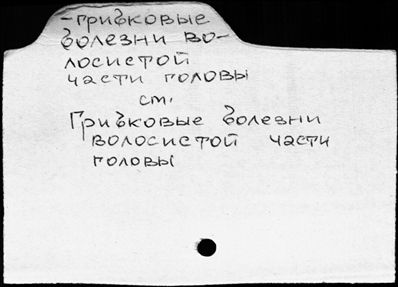 -грибковые
болезни во-
лосистой
части головы
см.
Грибковые болезни
волосистой части
головы